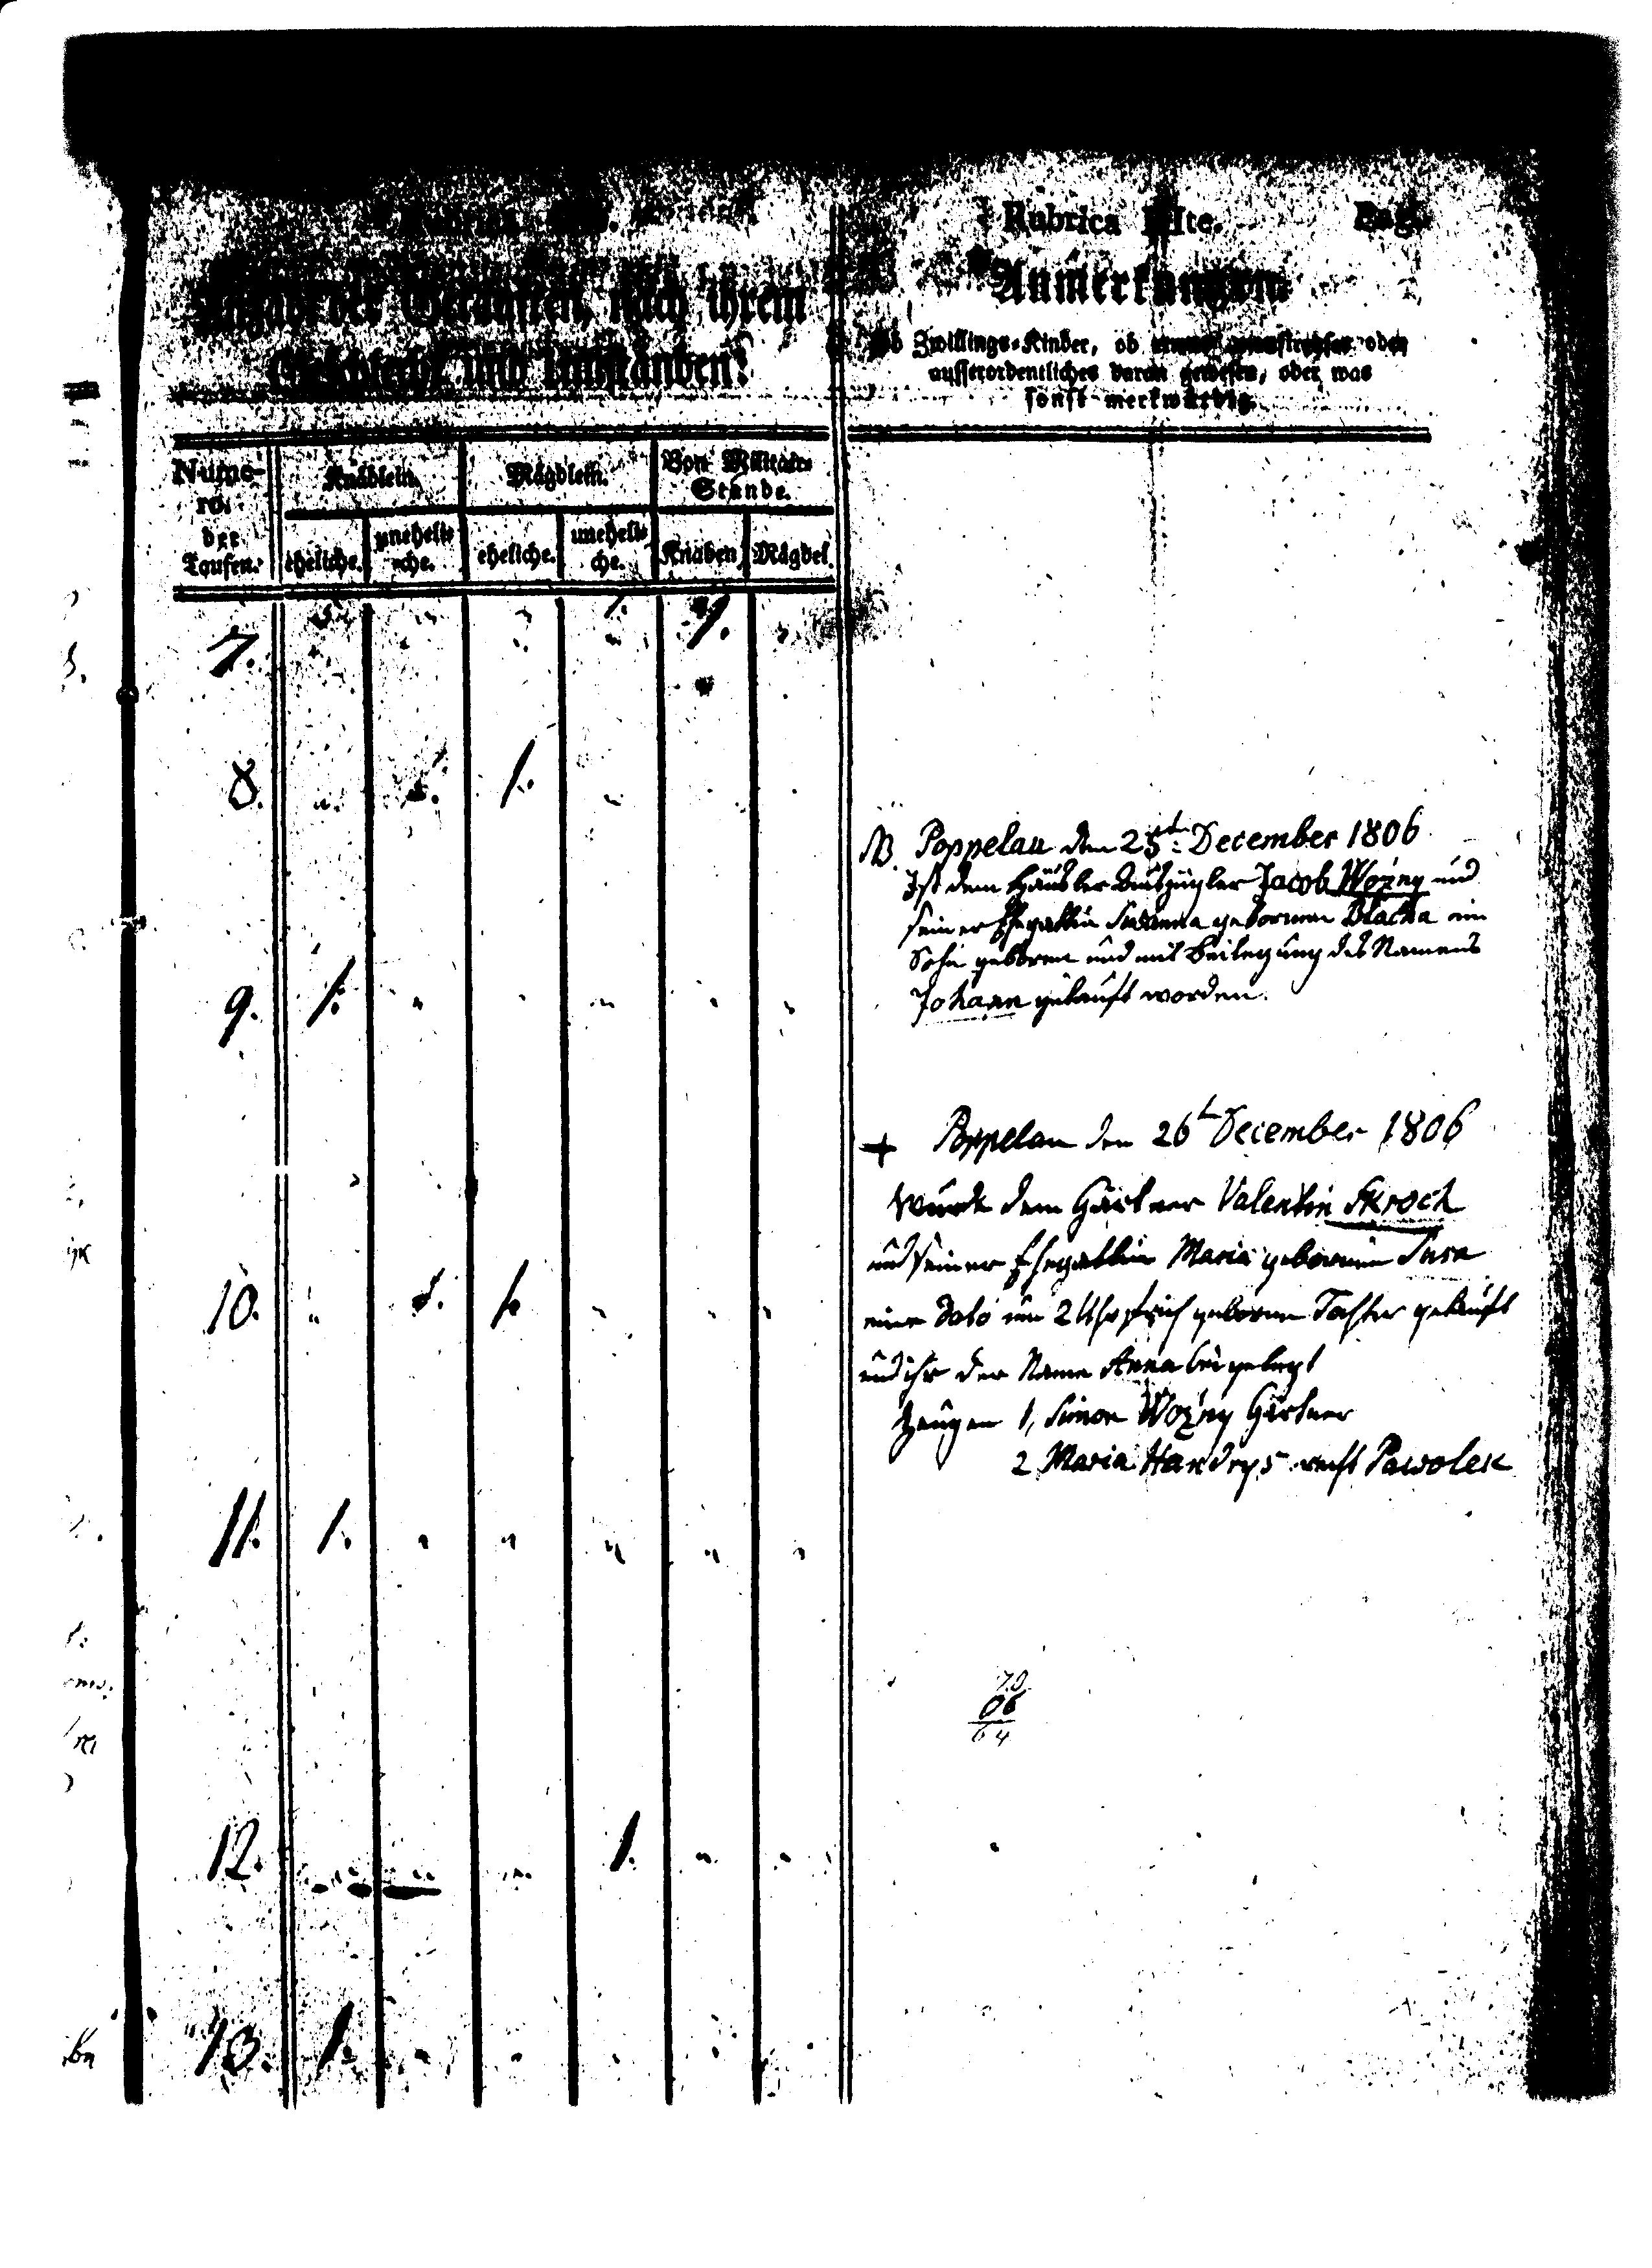 Rubrica IIte. Pag.
Anmerkungen
Ob Zwillings-Kinder, ob etwas oder
ausserordentliches daran gewesen, oder was
sonst merkwürdig.
der Getauften, nach ihrem
Geschlecht und Umständen.
Nume-
ro.
der
Taufen.
Knäblein. Mägdlein. Vom Militair-
Stande.
eheliche. uneheli-
che. eheliche. uneheli-
che. Knaben Mägdel.
7. 1.
8. 1.
NB. Poppelau den 25t: December 1806
Ist dem Häusler Auszügler Jacob Woźny und
seiner Ehegattin Susanna gebornen Blacha ein
Sohn geboren und mit Beilegung des Namens
Johann getauft worden.
9. 1.
+ Poppelau den 26t December 1806
Wurde dem Gärtner Valentin Skroch
und seiner Ehegattin Maria gebornen Susa
eine dato um 2 Uhr früh geborne Tochter getauft
und ihr der Name Anna beigelegt
Zeugen 1, Simon Woźny Gärtner
2 Maria Pawolek
10. 1.
11. 1.
70
06
64
12. 1.
13. 1.